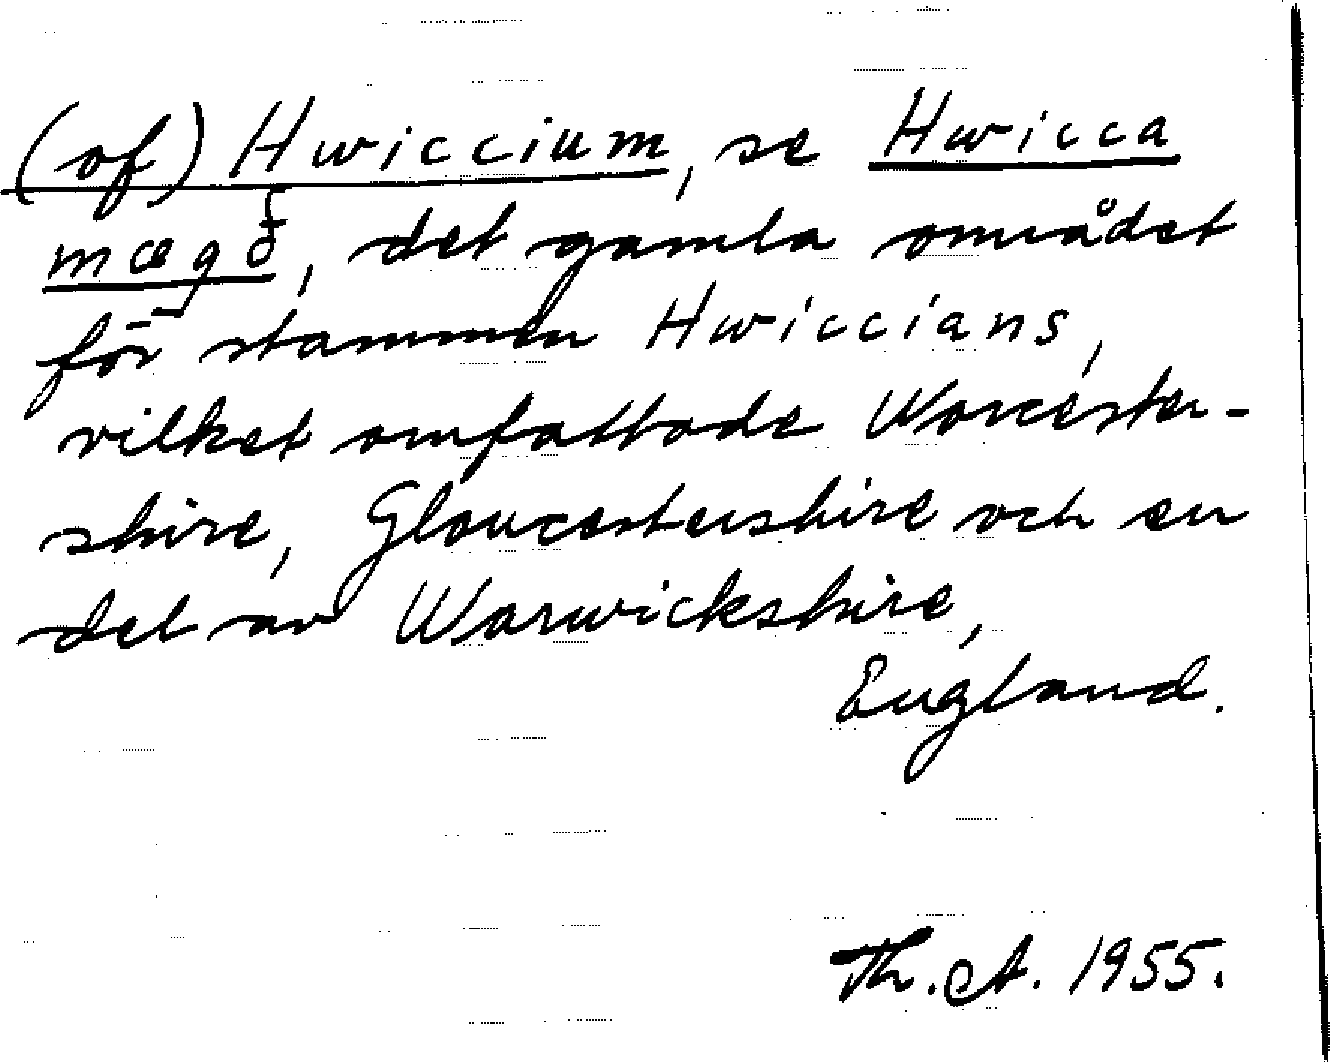 (of) Hwiccium, se Hwicca
mægð, det gamla området
för stammen Hwiccians,
vilket omfattade Worcester-
shire, Gloucestershire och en
del av Warwickshire,
England.
Th. A. 1955.